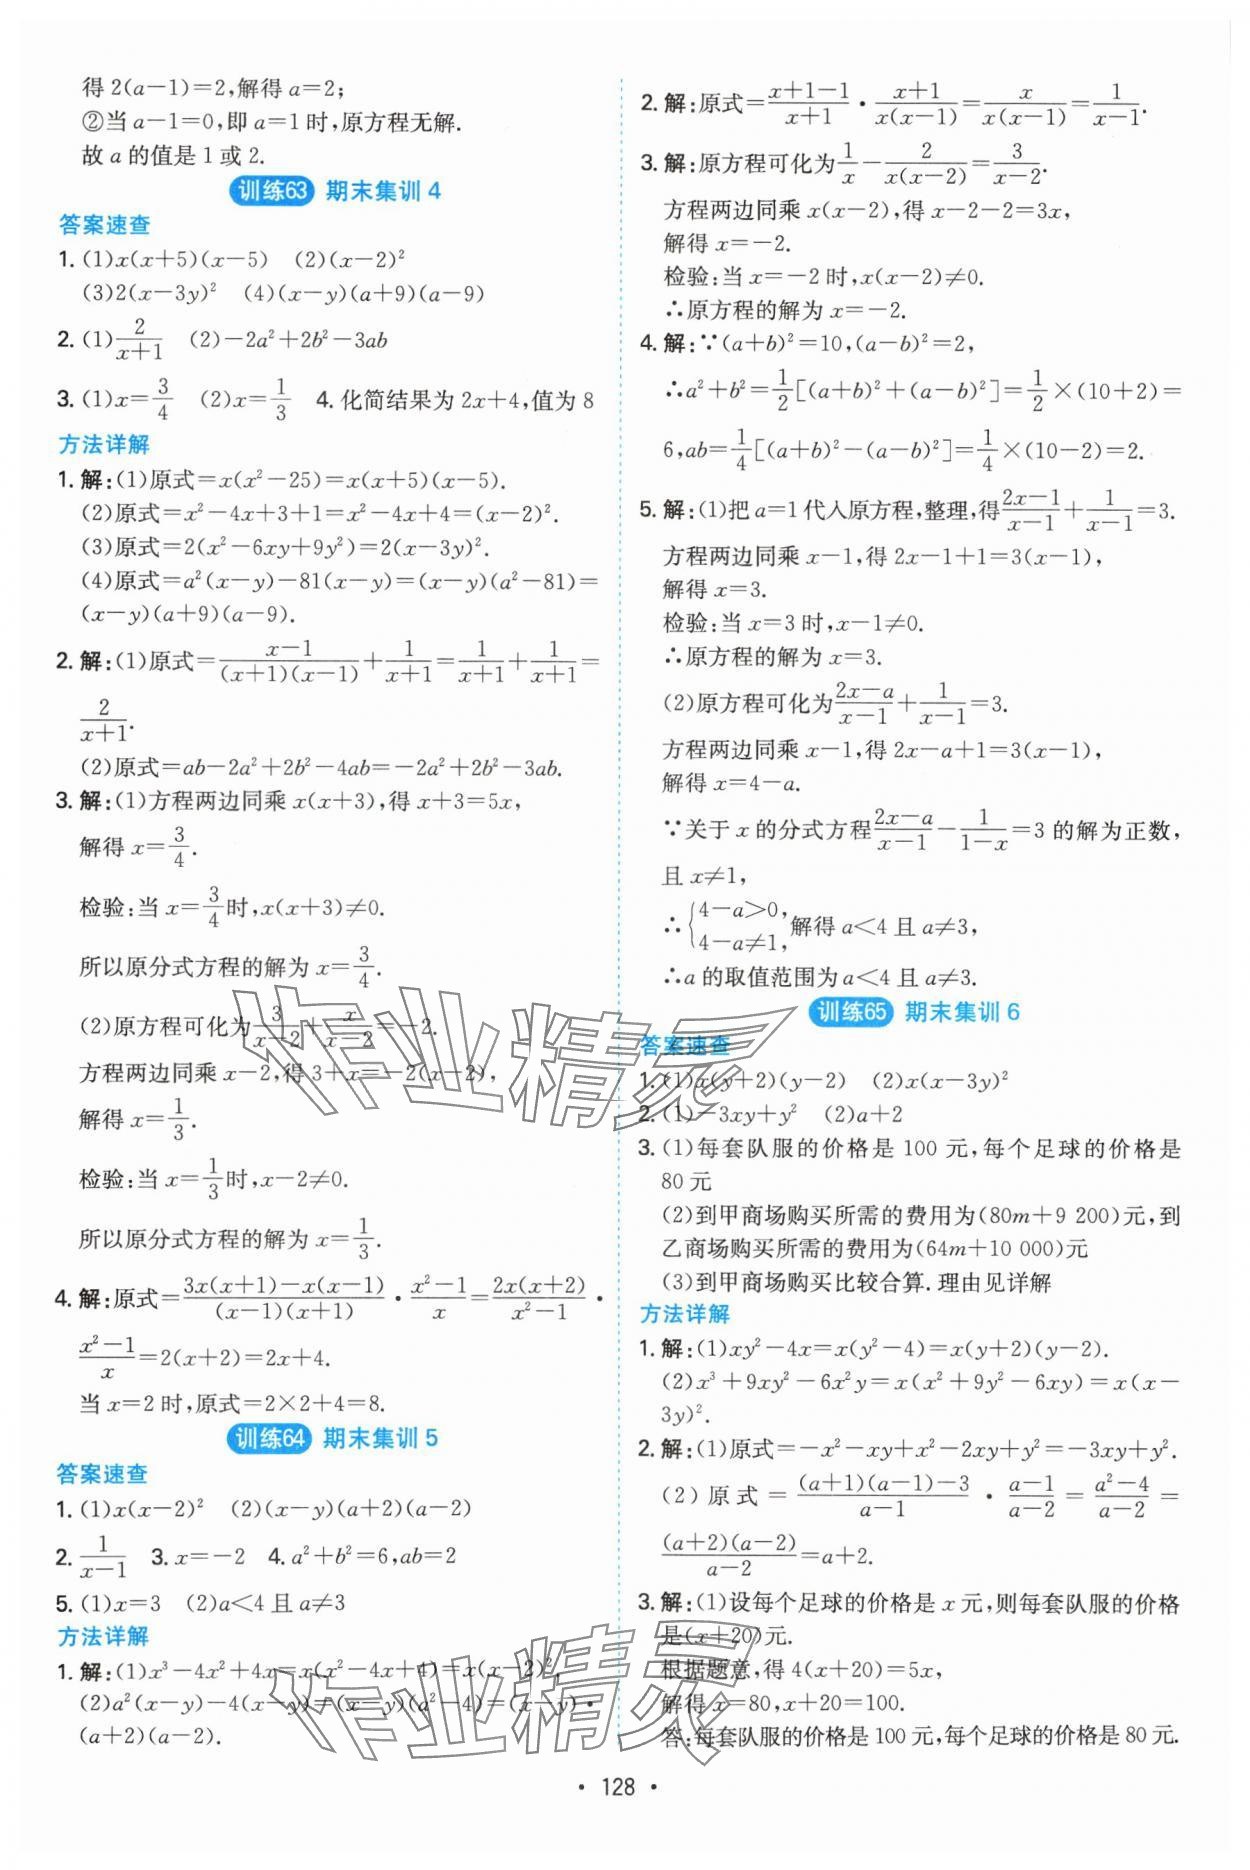 得 2(a-1)=2,解得 a=2;
②当 a-1=0,即 a=1 时,原方程无解.
故 a 的值是 1 或 2.
训练63 期末集训 4
答案速查
1. (1)x(x+5)(x-5) (2)(x-2)²
(3)2(x-3y)² (4)(x-y)(a+9)(a-9)
2. (1)2/(x+1) (2)-2a²+2b²-3ab
3. (1)x=3/4 (2)x=1/3 4. 化简结果为 2x+4,值为 8
方法详解
1. 解:(1)原式=x(x²-25)=x(x+5)(x-5).
(2)原式=x²-4x+3+1=x²-4x+4=(x-2)².
(3)原式=2(x²-6xy+9y²)=2(x-3y)².
(4)原式=a²(x-y)-81(x-y)=(x-y)(a²-81)=
(x-y)(a+9)(a-9).
2. 解:(1)原式=(x-1)/((x+1)(x-1))+1/(x+1)=1/(x+1)+1/(x+1)=
2/(x+1).
(2)原式=ab-2a²+2b²-4ab=-2a²+2b²-3ab.
3. 解:(1)方程两边同乘 x(x+3),得 x+3=5x,
解得 x=3/4.
检验:当 x=3/4时,x(x+3)≠0.
所以原分式方程的解为 x=3/4.
(2)原方程可化为3/(x-2)+x/(x-2)=-2.
方程两边同乘 x-2,得 3+x=-2(x-2),
解得 x=1/3.
检验:当 x=1/3时,x-2≠0.
所以原分式方程的解为 x=1/3.
4. 解:原式=(3x(x+1)-x(x-1))/((x-1)(x+1))·(x²-1)/x=2x(x+2)/(x²-1)·
(x²-1)/x=2(x+2)=2x+4.
当 x=2 时,原式=2×2+4=8.
训练64 期末集训 5
答案速查
1. (1)x(x-2)² (2)(x-y)(a+2)(a-2)
2. 1/(x-1) 3. x=-2 4. a²+b²=6,ab=2
5. (1)x=3 (2)a<4 且 a≠3
方法详解
1. 解:(1)x³-4x²+4x=x(x²-4x+4)=x(x-2)².
(2)a²(x-y)-4(x-y)=(x-y)(a²-4)=(x-y)·
(a+2)(a-2).
2. 解:原式=(x+1-1)/(x+1)·(x+1)/(x(x-1))=x/(x(x-1))=1/(x-1).
3. 解:原方程可化为1/x-2/(x(x-2))=3/(x-2).
方程两边同乘 x(x-2),得 x-2-2=3x,
解得 x=-2.
检验:当 x=-2 时,x(x-2)≠0.
∴原方程的解为 x=-2.
4. 解:∵(a+b)²=10,(a-b)²=2,
∴a²+b²=1/2[(a+b)²+(a-b)²]=1/2×(10+2)=
6,ab=1/4[(a+b)²-(a-b)²]=1/4×(10-2)=2.
5. 解:(1)把 a=1 代入原方程,整理,得(2x-1)/(x-1)+1/(x-1)=3.
方程两边同乘 x-1,得 2x-1+1=3(x-1),
解得 x=3.
检验:当 x=3 时,x-1≠0.
∴原方程的解为 x=3.
(2)原方程可化为(2x-a)/(x-1)+1/(x-1)=3.
方程两边同乘 x-1,得 2x-a+1=3(x-1),
解得 x=4-a.
∵关于 x 的分式方程(2x-a)/(x-1)-1/(1-x)=3 的解为正数,
且 x≠1,
∴{4-a>0, 4-a≠1,解得 a<4 且 a≠3,
∴a 的取值范围为 a<4 且 a≠3.
训练65 期末集训 6
答案速查
1. (1)x(y+2)(y-2) (2)x(x-3y)²
2. (1)-3xy+y² (2)a+2
3. (1)每套队服的价格是 100 元,每个足球的价格是
80 元
(2)到甲商场购买所需的费用为(80m+9 200)元,到
乙商场购买所需的费用为(64m+10 000)元
(3)到甲商场购买比较合算. 理由见详解
方法详解
1. 解:(1)xy²-4x=x(y²-4)=x(y+2)(y-2).
(2)x³+9xy²-6x²y=x(x²+9y²-6xy)=x(x-
3y)².
2. 解:(1)原式=-x²-xy+x²-2xy+y²=-3xy+y².
(2)原式=((a+1)(a-1)-3)/(a-1)·(a-1)/(a-2)=(a²-4)/(a-2)=
((a+2)(a-2))/(a-2)=a+2.
3. 解:(1)设每个足球的价格是 x 元,则每套队服的价格
是(x+20)元.
根据题意,得 4(x+20)=5x,
解得 x=80,x+20=100.
答:每套队服的价格是 100 元,每个足球的价格是 80 元.
· 128 ·
作业精灵
作业精灵